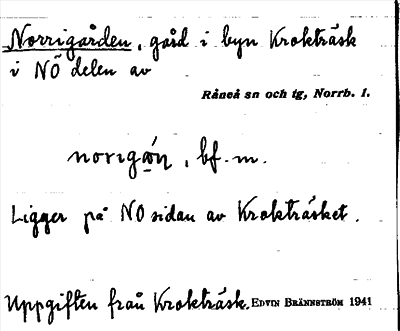 Norrigården, gård i byn Krokträsk
i NÖ delen av
Råneå sn och tg, Norrb. l.
bf. m.
Ligger på NO sidan av Krokträsket.
Uppgiften från Krokträsk. EDVIN BRÄNNSTRÖM 1941